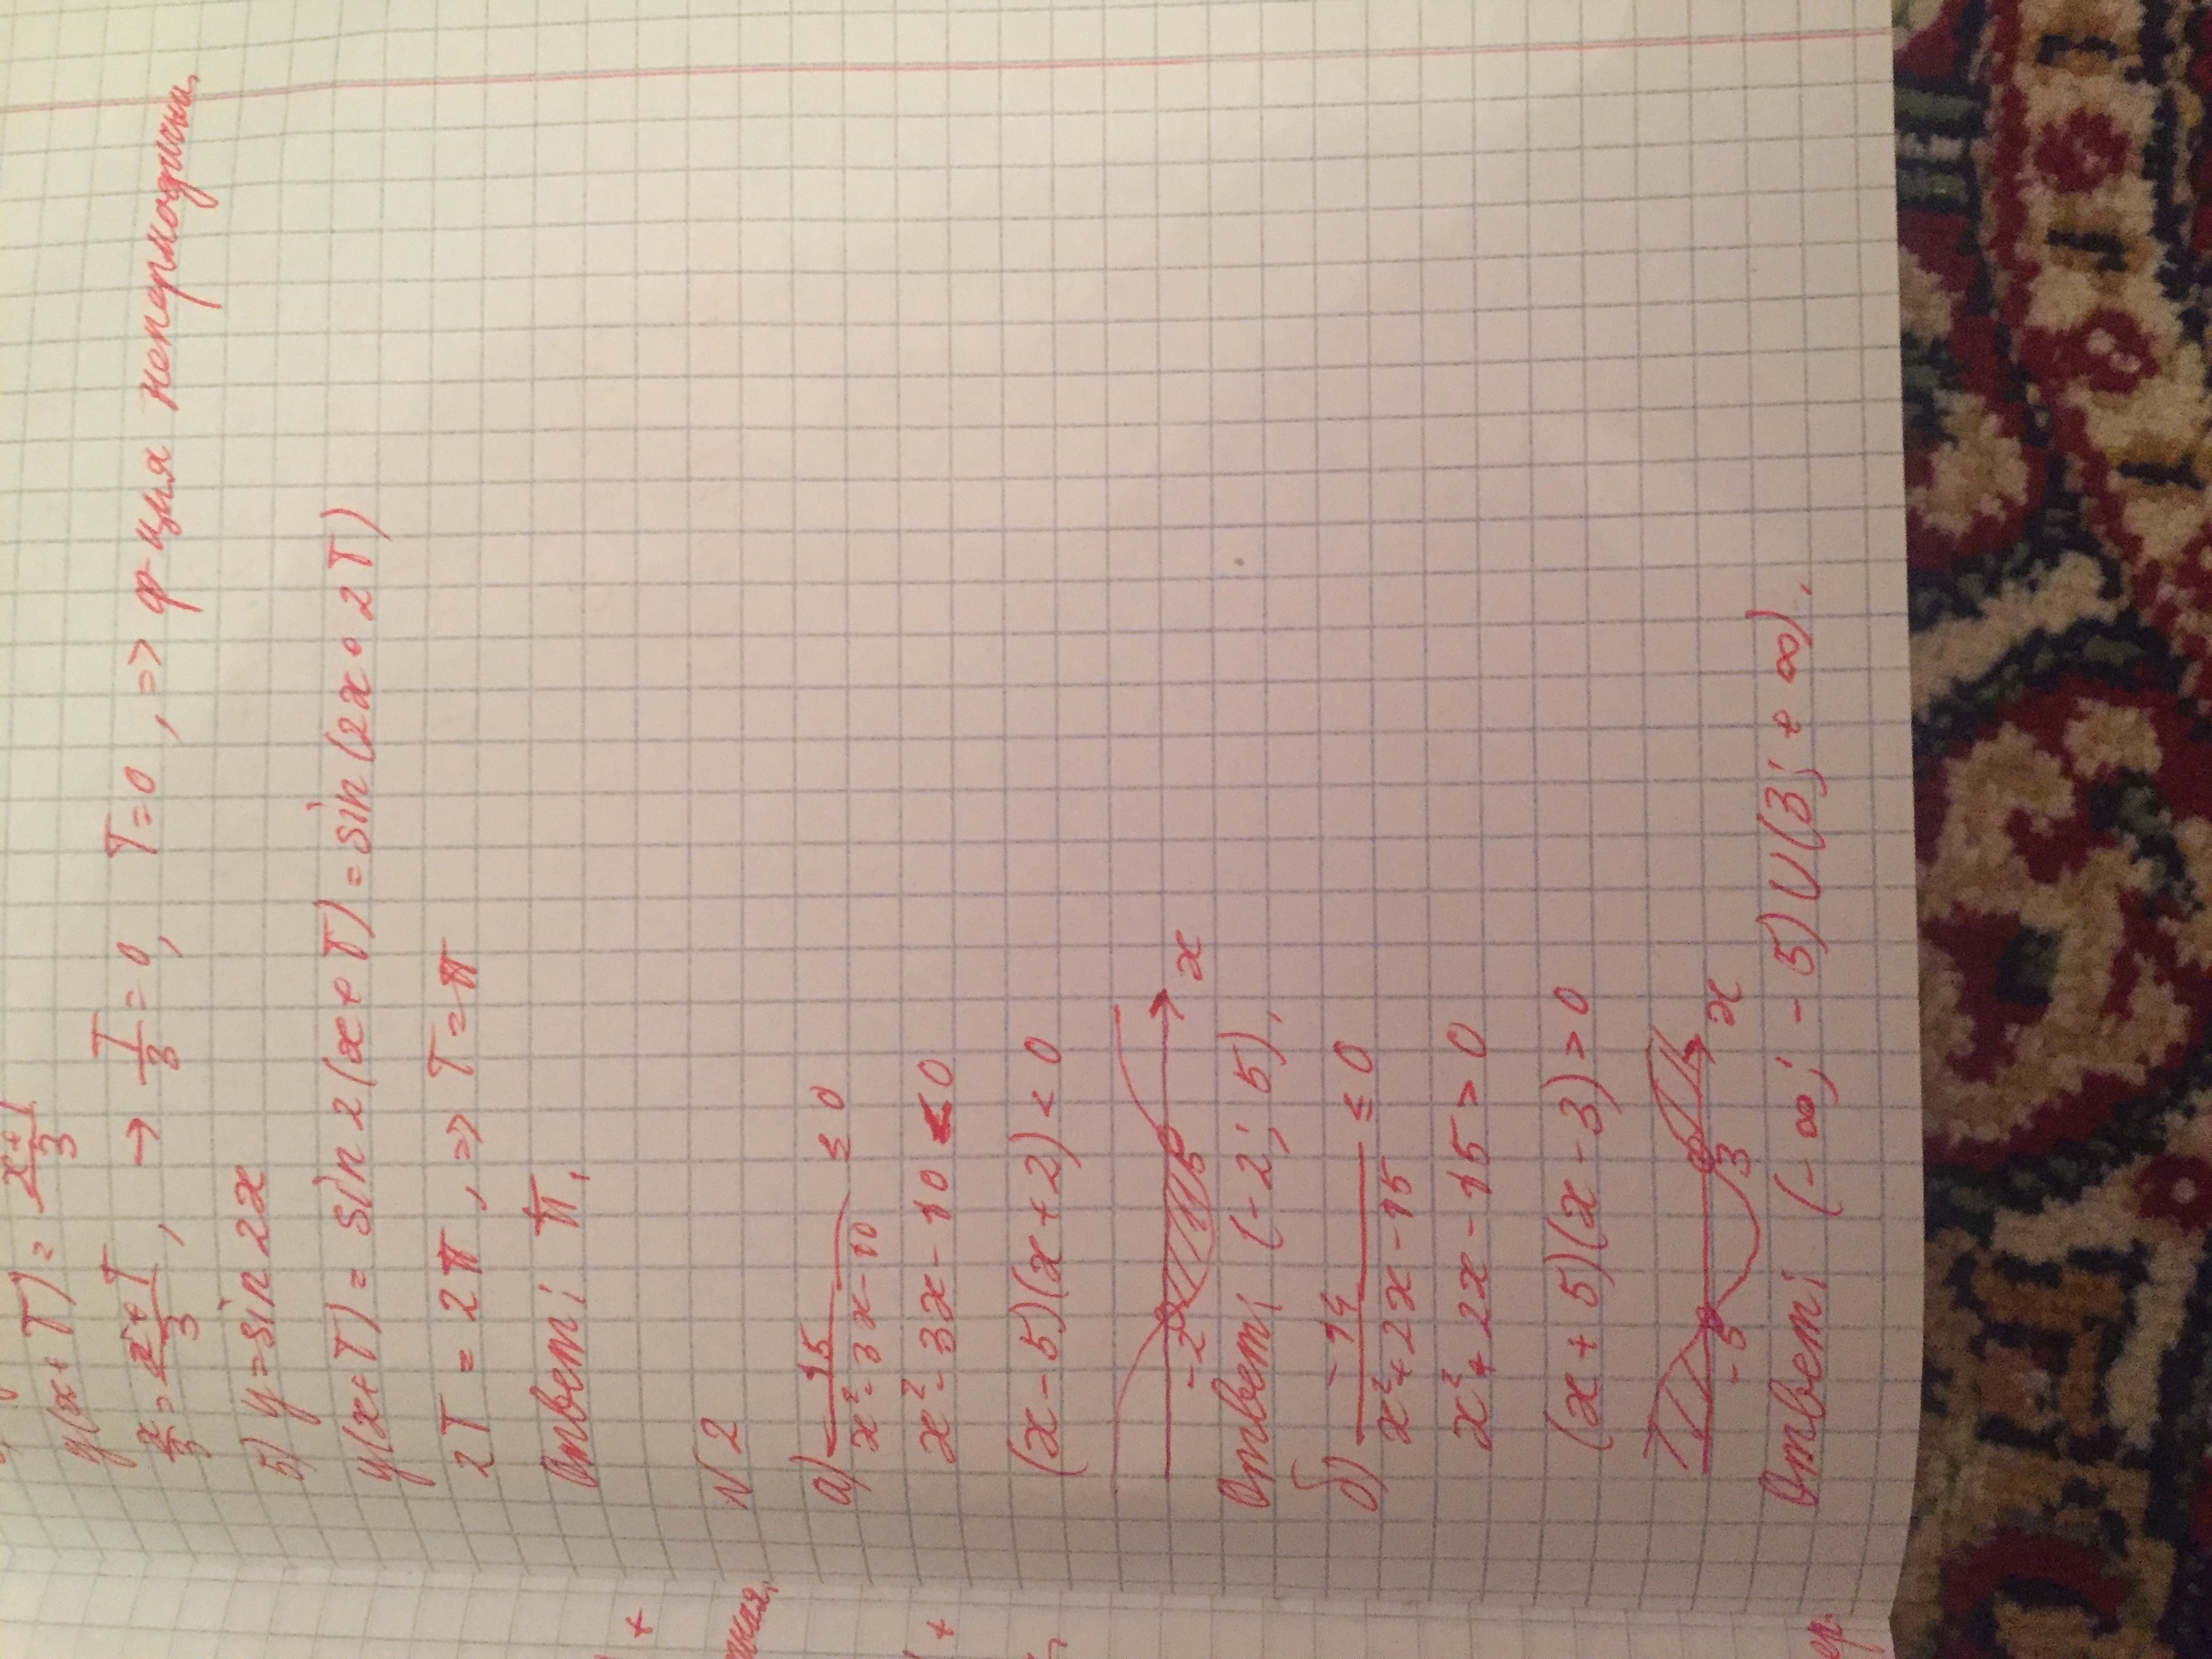 y(x+T) = x+T/3
x/3 = x+T/3, → T/3 = 0, T = 0, => ф-ция непериодична.
5) y = sin 2x
y(x+T) = sin 2(x+T) = sin(2x+2T)
2T = 2π, => T = π
Ответ: π.
№2
а) 15/x²-3x-10 ≤ 0
x²-3x-10 < 0
(x-5)(x+2) < 0
-2 5 x
Ответ: (-2; 5).
б) -14/x²+2x-15 ≤ 0
x²+2x-15 > 0
(x+5)(x-3) > 0
-5 3 x
Ответ: (-∞; -5) U (3; +∞).